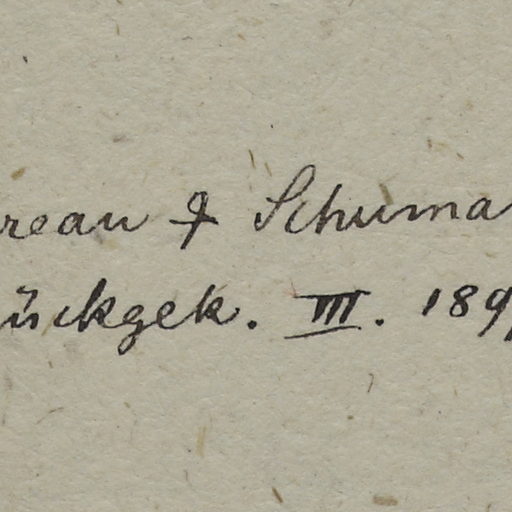 reau & Schuma
ückgek. III. 189